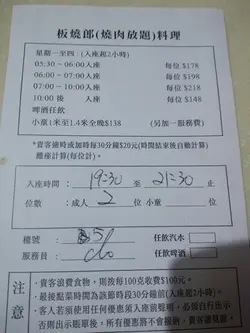 板燒郎(燒肉放題)料理
星期一至四 : (入座超2小時)
05:30 ~ 06:00入座 每位 $178
06:00 ~ 07:00入座 每位 $198
07:00 ~ 10:00入座 每位 $218
10:00 後 入座 每位 $148
啤酒任飲
小童1米至1.4米全晚$138 (另加一服務費)
*貴客逾時或加時每30分鐘$20元(時間結束後自動計算)
總座計算(每位計)。
入座時間: 19:30 至 21:30 止
位數: 成人 2 位 小童 位
檯號 : 51 任飲汽水 □
服務員 : 任飲啤酒 □
注意
*貴客浪費食物, 則按每100克收費$100元。
*最後點菜時間為該節時段30分鐘前(入座超2小時)。
*客人若須使用任何優惠須入座前聲明, 必須自行出示
否則出示賬單後, 所有優惠將不會提供